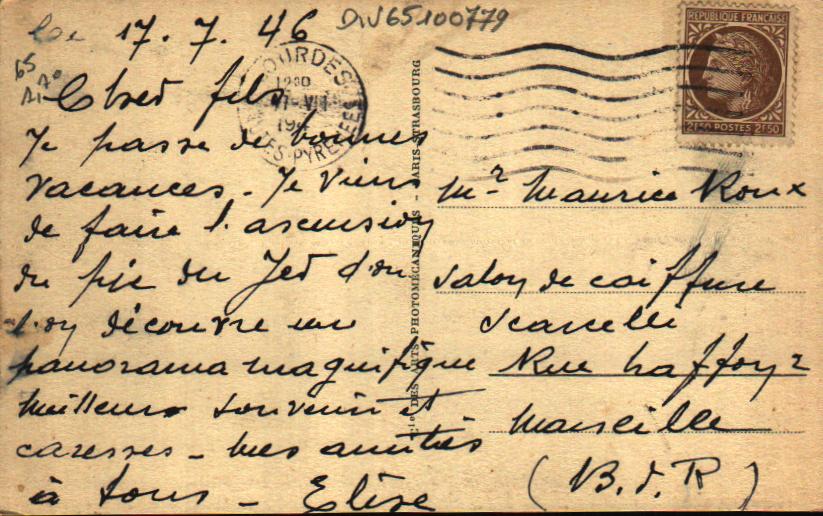 Le 17.7.46
DIV65100779
65
Cher fils
Je passe de bonnes
vacances - Je viens
de faire l'ascension
du pic du Jer d'ou
l'on découvre un
panorama magnifique
meilleurs souvenirs et
caresses - mes amitiés
à tous - Elise
LOURDES
1230
17-VII
194
HTES-PYRENEES
DES ARTS PHOTOMÉCANIQUES - PARIS-STRASBOURG
REPUBLIQUE FRANÇAISE
2F50 POSTES 2F50
Mr Maurice Roux
salon de coiffure
Scarcelli
Rue
Marseille
(B.d.R)